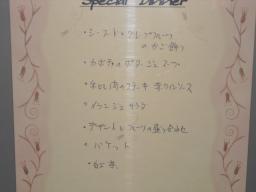 Special Dinner
・シーフードとグレープフルーツ
のかご飾り
・カボチャのポタージュスープ
・牛ヒレ肉のステーキ 赤ワインソース
・メランジェサラダ
・デザートとフルーツの盛り合わせ
・バケット
・紅茶